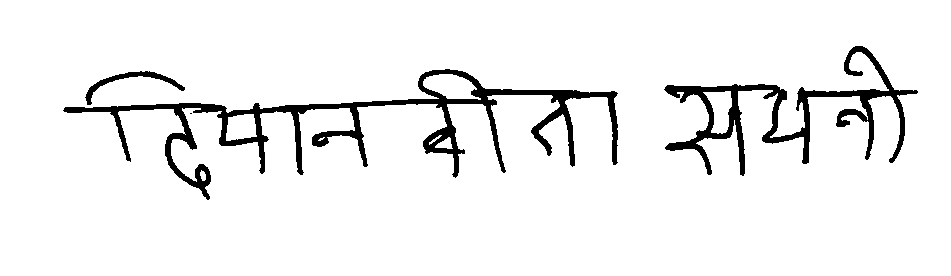 दिपान बीता सयनी